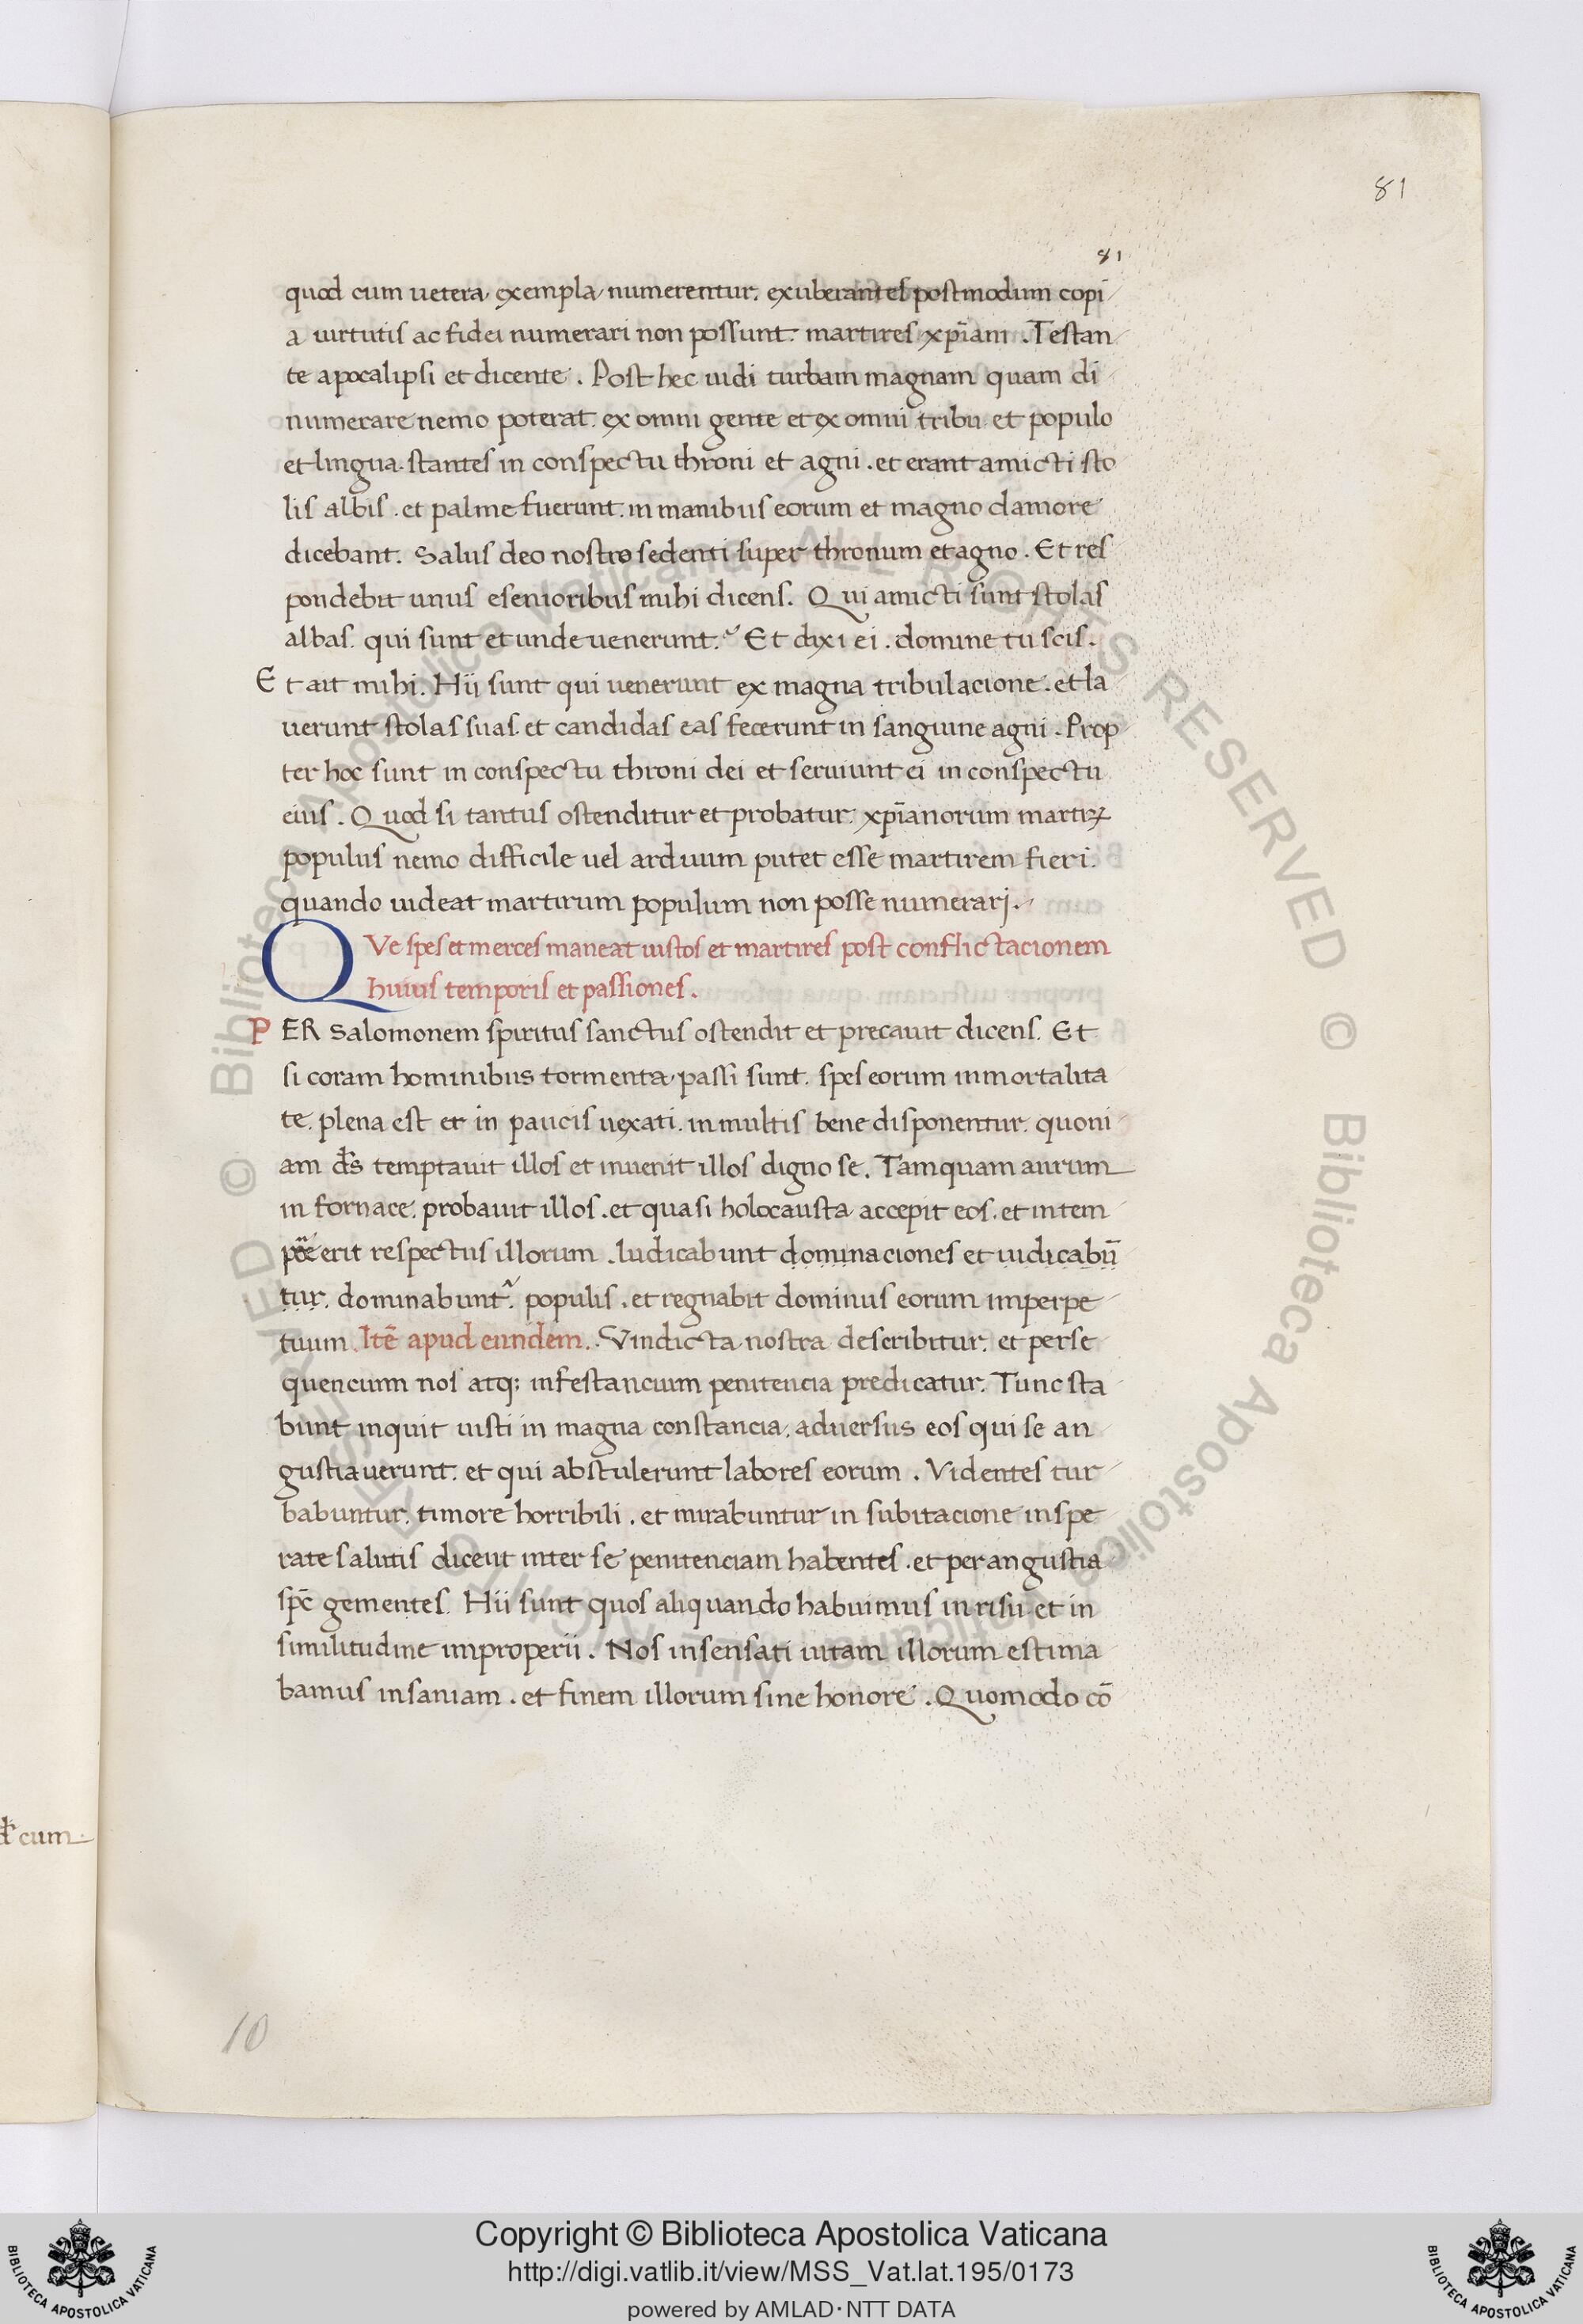 81
81
quod cum uetera exempla numerentur. exuberantes postmodum copi
a uirtutis ac fidei numerari non possunt. martires xp̄iani. Testan
te apocalipsi et dicente. Post hec uidi turbam magnam quam di
numerare nemo poterat. ex omni gente et ex omni tribu. et populo
et lingua. stantes in conspectu throni et agni. et erant amicti sto
lis albis. et palme fuerunt. in manibus eorum et magno clamore
dicebant. Salus deo nostro sedenti super thronum et agno. Et res
pondebit unus e senioribus mihi dicens. Qui amicti sunt stolas
albas. qui sunt et unde uenerunt? Et dixi ei. domine tu scis.
Et ait mihi. Hii sunt qui uenerunt ex magna tribulacione. et la
uerunt stolas suas. et candidas eas fecerunt in sanguine agni. Prop
ter hoc sunt in conspectu throni dei et seruiunt ei in conspectu
eius. Quod si tantus ostenditur et probatur. xp̄ianorum martiꝝ
populus nemo difficile uel arduum putet esse martirem fieri.
quando uideat martirum populum non posse numerarj.
QVe spes et merces maneat iustos et martires post conflictacionem
huius temporis et passiones.
PER Salomonem spiritus sanctus ostendit et precauit dicens. Et
si coram hominibus tormenta passi sunt. spes eorum inmortalita
te. plena est et in paucis uexati. in multis bene disponentur. quoni
am d̄s temptauit illos et inuenit illos digno se. Tamquam aurum
in fornace. probauit illos. et quasi holocausta accepit eos. et in tem
erit respectus illorum. Iudicabunt dominaciones et iudicabū
tur. dominabunt. populis. et regnabit dominus eorum imperpe
tuum. Itē apud eundem. Vindicta nostra describitur. et perse
quencium nos atq; infestancium penitencia predicatur. Tunc sta
bunt inquit iusti in magna constancia. aduersus eos qui se an
gustiauerunt. et qui abstulerunt labores eorum. Videntes tur
babuntur. timore horribili. et mirabuntur in subitacione inspe
rate salutis dicent inter se penitenciam habentes. et per angustia
sp̄c gementes. Hii sunt quos aliquando habuimus in risu. et in
similitudine improperii. Nos insensati uitam illorum estima
bamus insaniam. et finem illorum sine honore. Quomodo cō
cum
10
© Biblioteca Apostolica Vaticana ALL RIGHTS RESERVED © Biblioteca Apostolica Vaticana ALL RIGHTS RESERVED
BIBLIOTECA APOSTOLICA VATICANA
Copyright © Biblioteca Apostolica Vaticana
http://digi.vatlib.it/view/MSS_Vat.lat.195/0173
powered by AMLAD·NTT DATA
BIBLIOTECA APOSTOLICA VATICANA